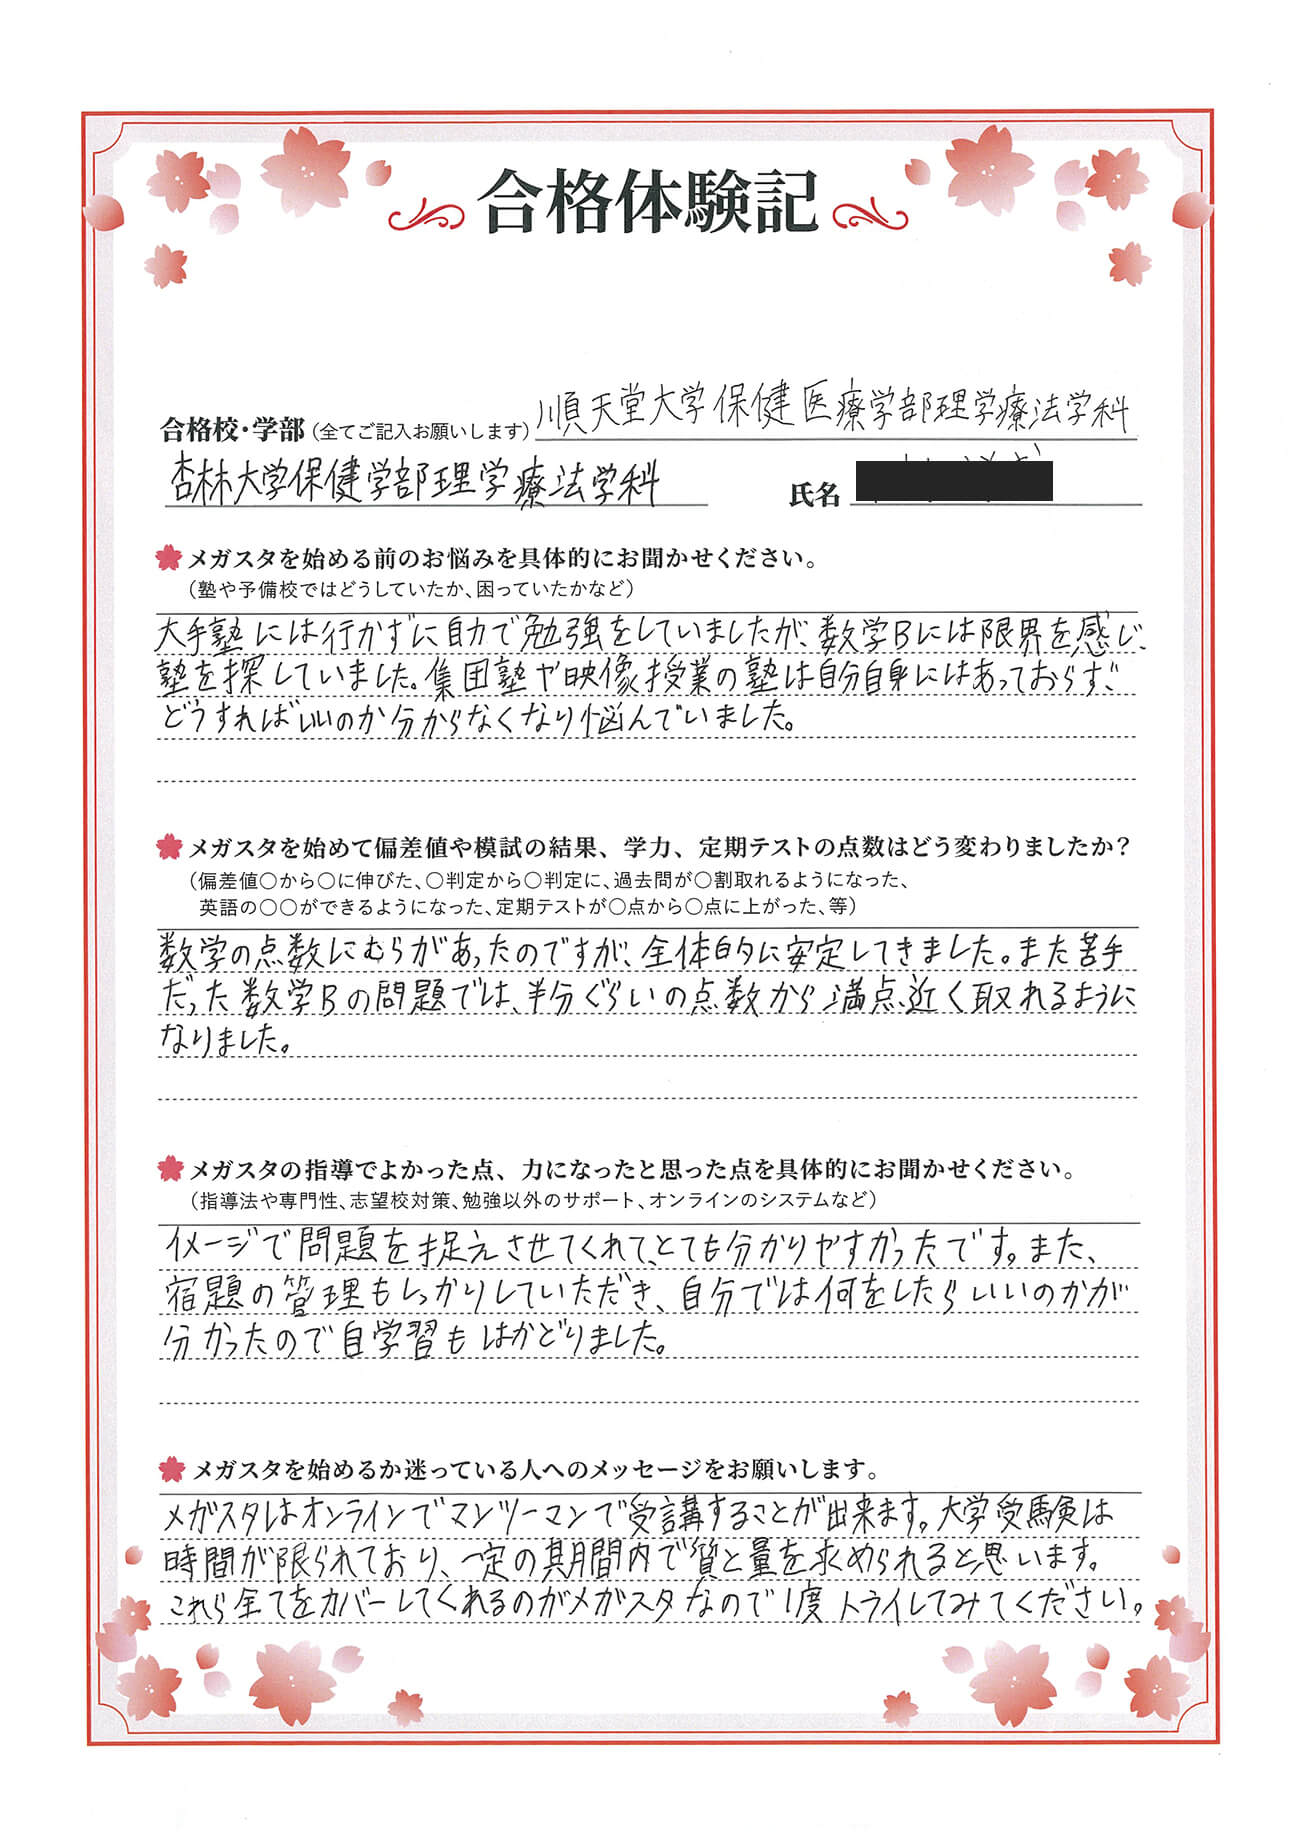 合格体験記
合格校・学部(全てご記入お願いします)順天堂大学保健医療学部理学療法学科
杏林大学保健学部理学療法学科 氏名
メガスタを始める前のお悩みを具体的にお聞かせください。
(塾や予備校ではどうしていたか、困っていたかなど)
大手塾には行かずに自力で勉強をしていましたが、数学Bには限界を感じ、
塾を探していました。集団塾や映像授業の塾は自分自身にはあっておらず、
どうすればいいのか分からなくなり悩んでいました。
メガスタを始めて偏差値や模試の結果、学力、定期テストの点数はどう変わりましたか?
(偏差値○から○に伸びた、○判定から○判定に、過去問が○割取れるようになった、
英語の○○ができるようになった、定期テストが○点から○点に上がった、等)
数学の点数にむらがあったのですが、全体的に安定してきました。また苦手
だった数学Bの問題では、半分ぐらいの点数から満点近く取れるように
なりました。
メガスタの指導でよかった点、力になったと思った点を具体的にお聞かせください。
(指導法や専門性、志望校対策、勉強以外のサポート、オンラインのシステムなど)
イメージで問題を捉えさせてくれて、とても分かりやすかったです。また、
宿題の管理もしっかりしていただき、自分では何をしたらいいのかが
分かったので自学習もはかどりました。
メガスタを始めるか迷っている人へのメッセージをお願いします。
メガスタはオンラインでマンツーマンで受講することが出来ます。大学受験は
時間が限られており、一定の期間内で質と量を求められると思います。
これら全てをカバーしてくれるのがメガスタなので1度トライしてみてください。